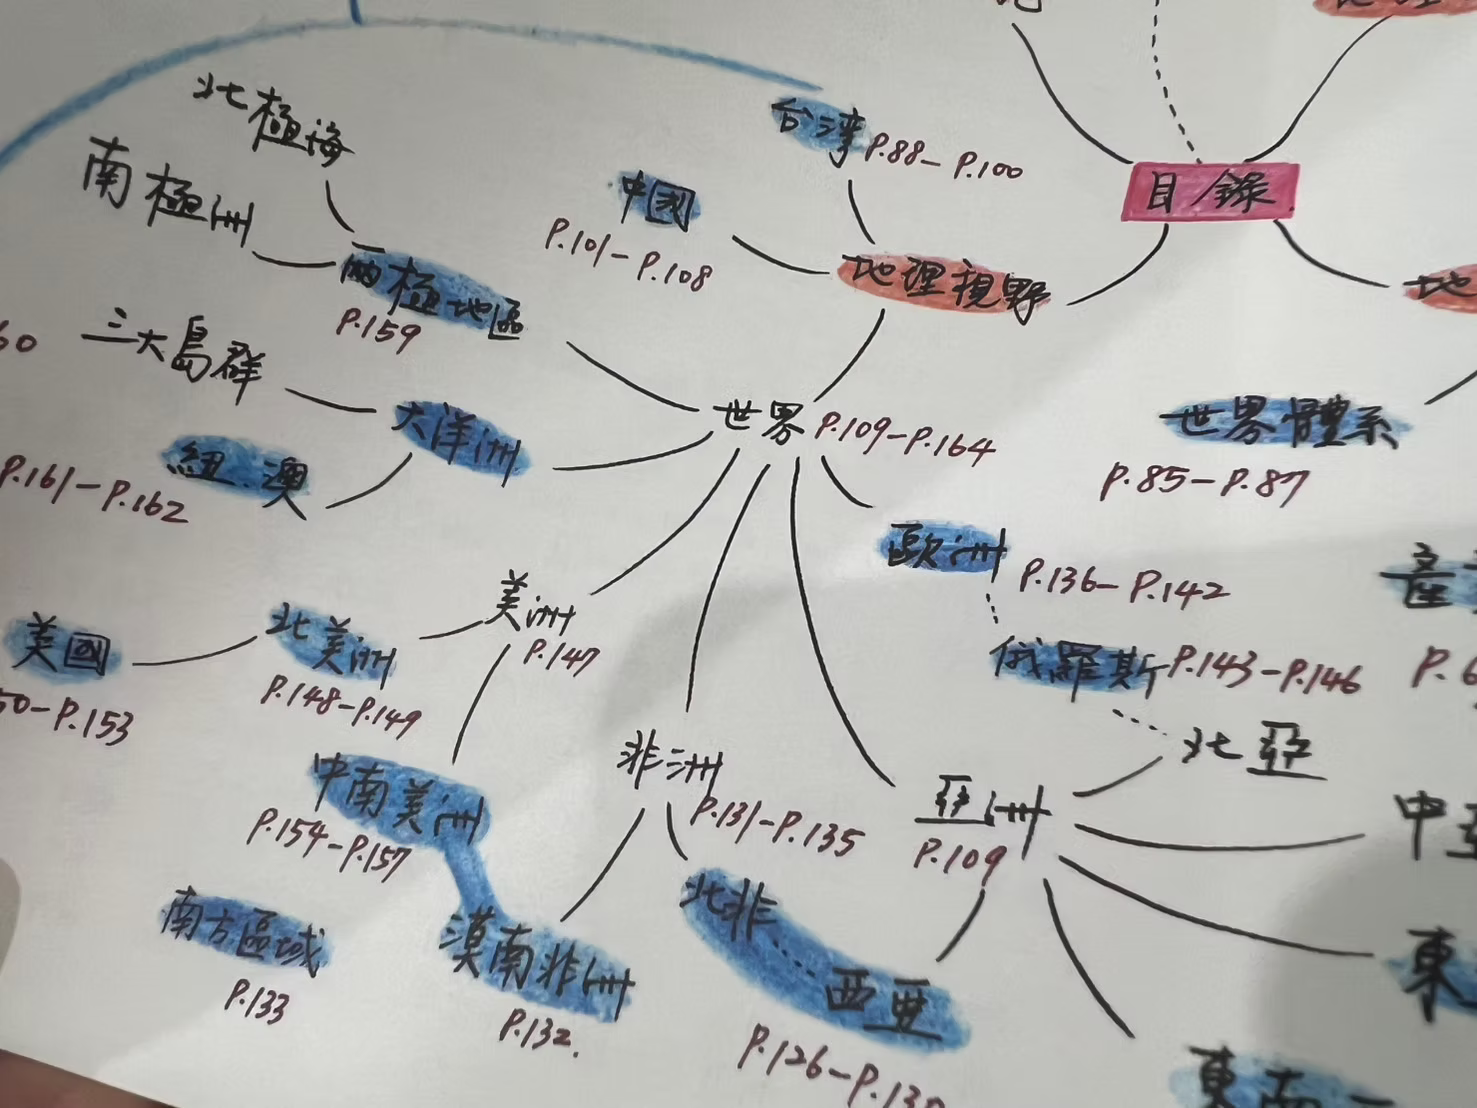 北極海
台灣 P.88－P.100
目錄
南極洲
中國
P.101－P.108
地理視野
兩極地區
P.159
三大島群
大洋洲
世界 P.109－P.164
世界體系
P.85－P.87
紐.澳
P.161－P.162
歐洲
P.136－P.142
美洲
P.147
美國
P.153
北美洲
P.148－P.149
俄羅斯 P.143－P.146
北亞
非洲
P.131－P.135
亞洲
P.109
中南美洲
P.154－P.157
南方區域
P.133
漠南非洲
P.132.
北非
西亞
P.126－P.130